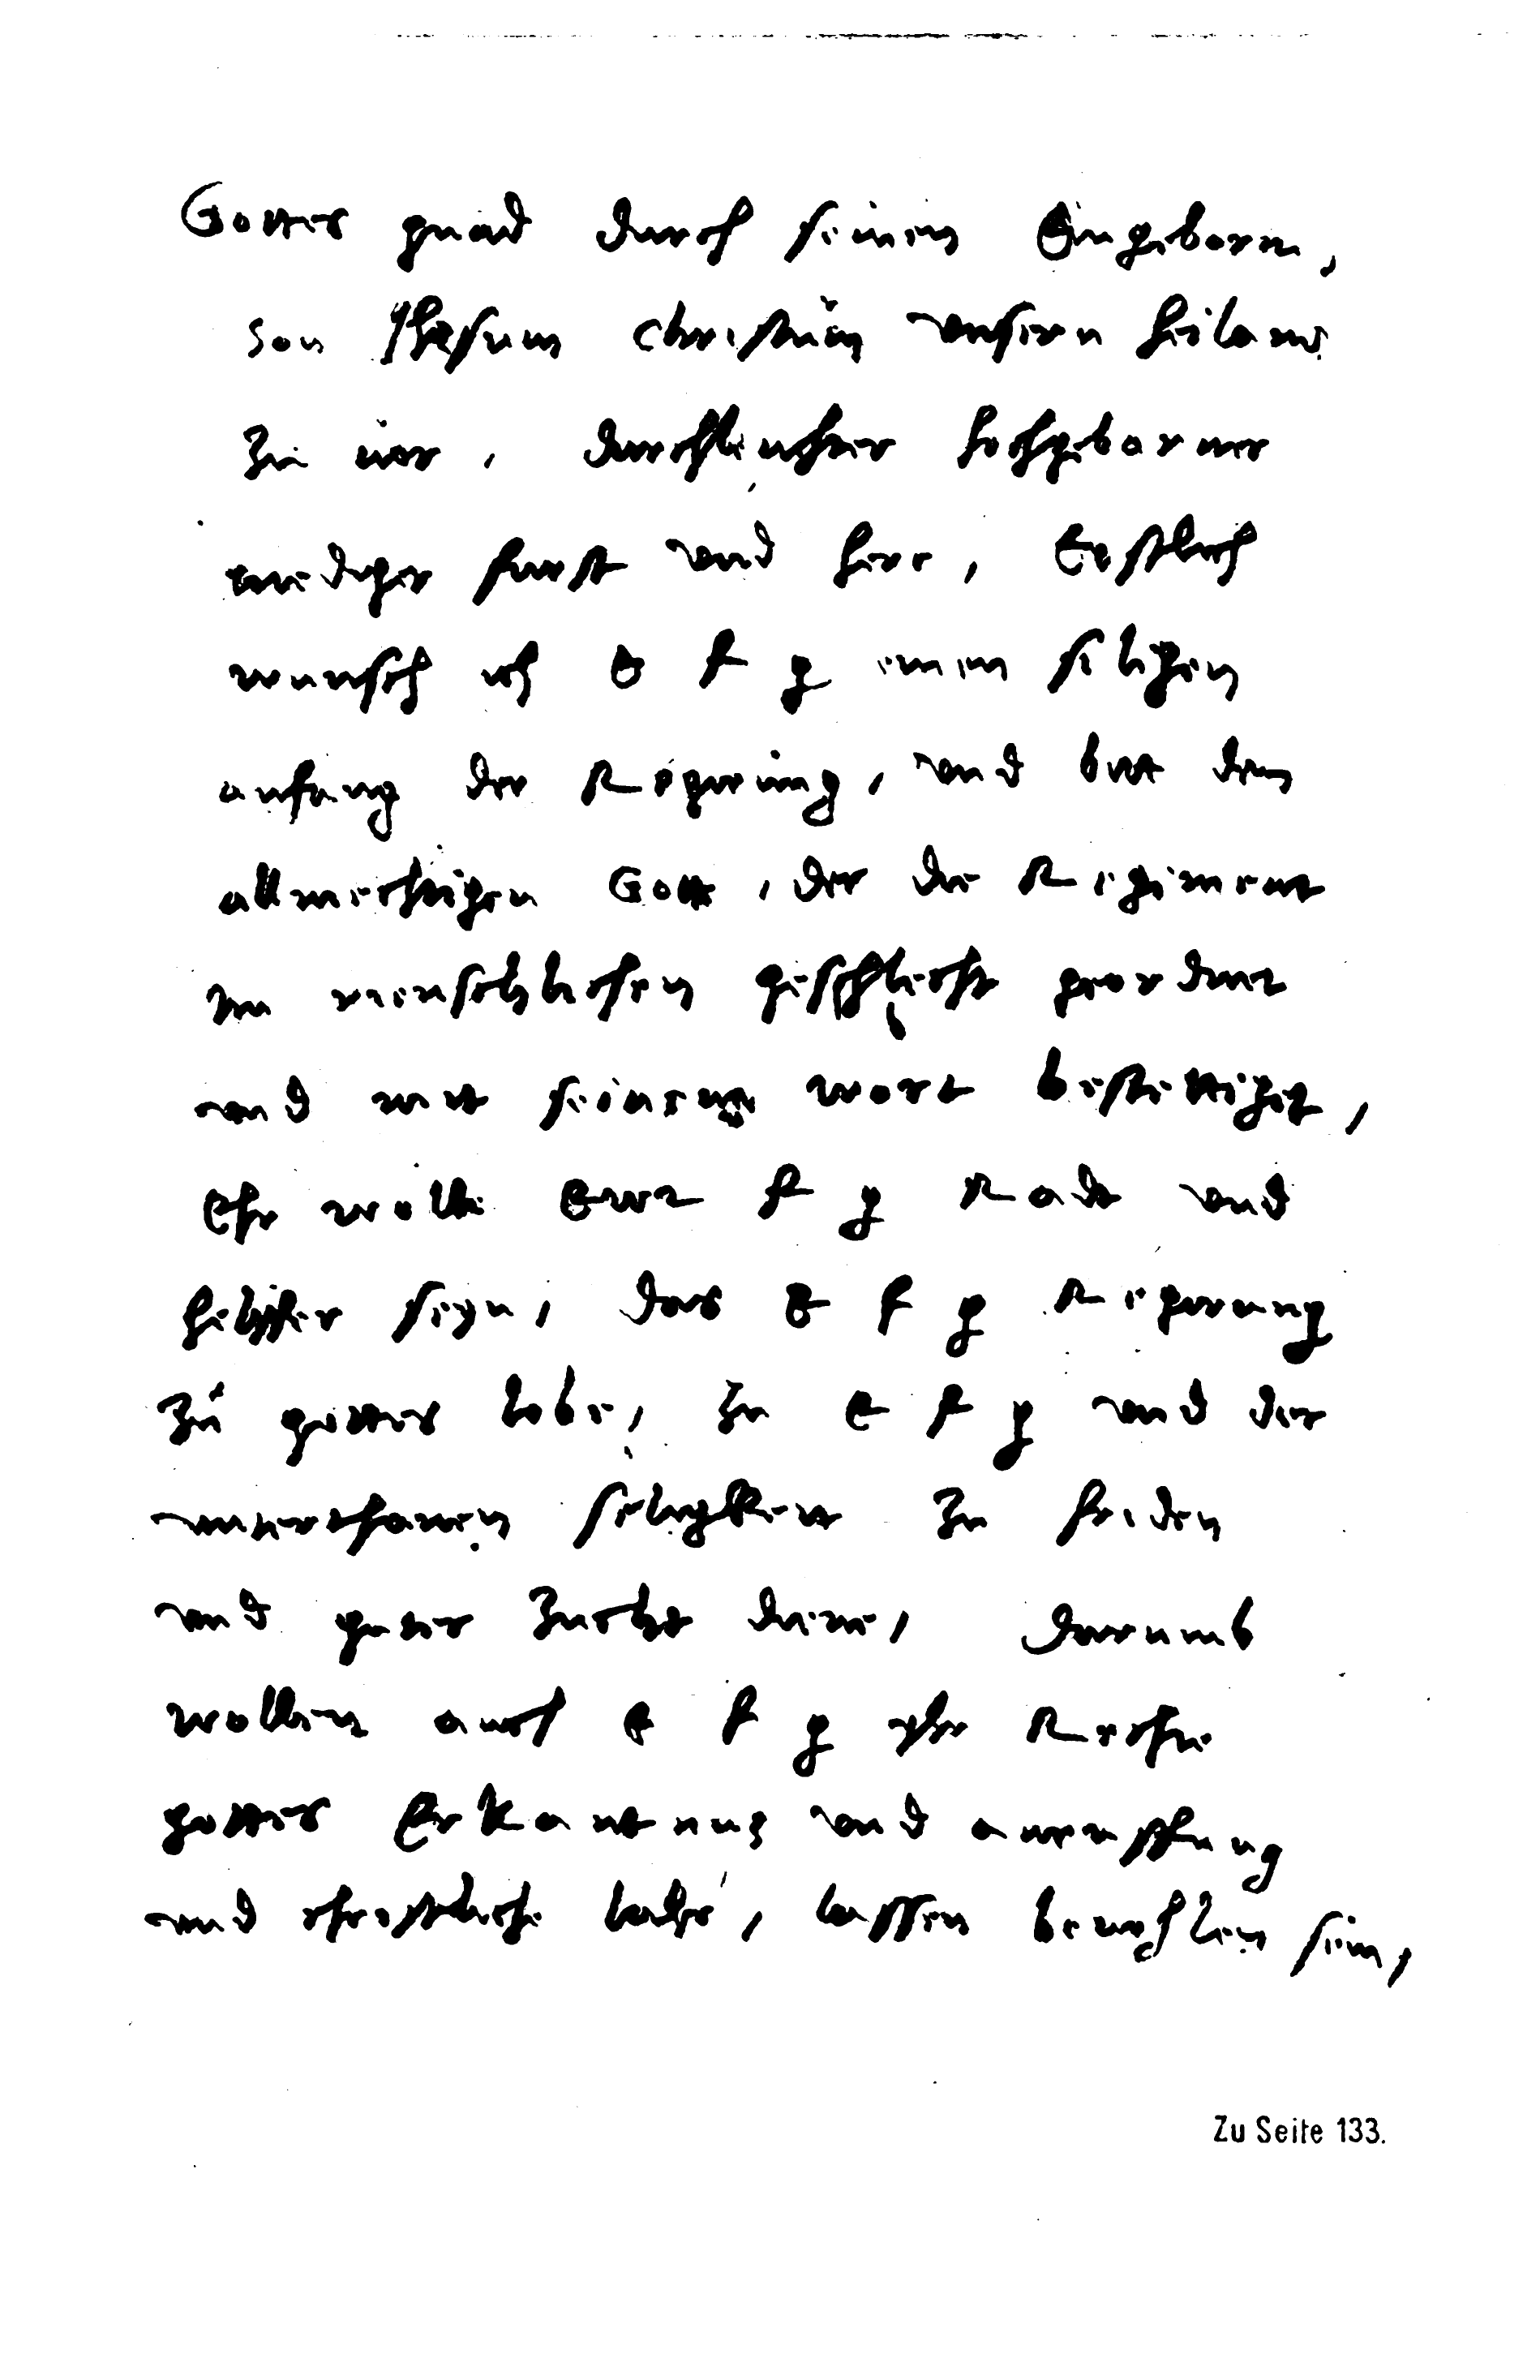 Gottes gnad durch seinen Eingebornn,
son Jhesum christum vnsern heiland
zu uor, durchleuchter hochgeborner
gnediger furst vnd herr, Erstlich
wunsch ich E f g einen seligen
anfang der Regirung, vnd bitt den
allmechtigen Gott, der die Regiment
im menschlichen geschlecht geordnet
vnd mit seinem wort bestettiget,
Ehr wolle Ewr f g Radt vnd
helffer seyn, das E f g Regirung
zu gottes lobe, zu E f g vnd der
vnterthanen seligkeit zu friden
vnd guter zucht diene, darumb
wollen auch E f g yhr Rechte
gottes Erkantnus vnd anruffung
vnd christliche lahr, lassen beuohlen sein,
Zu Seite 133.